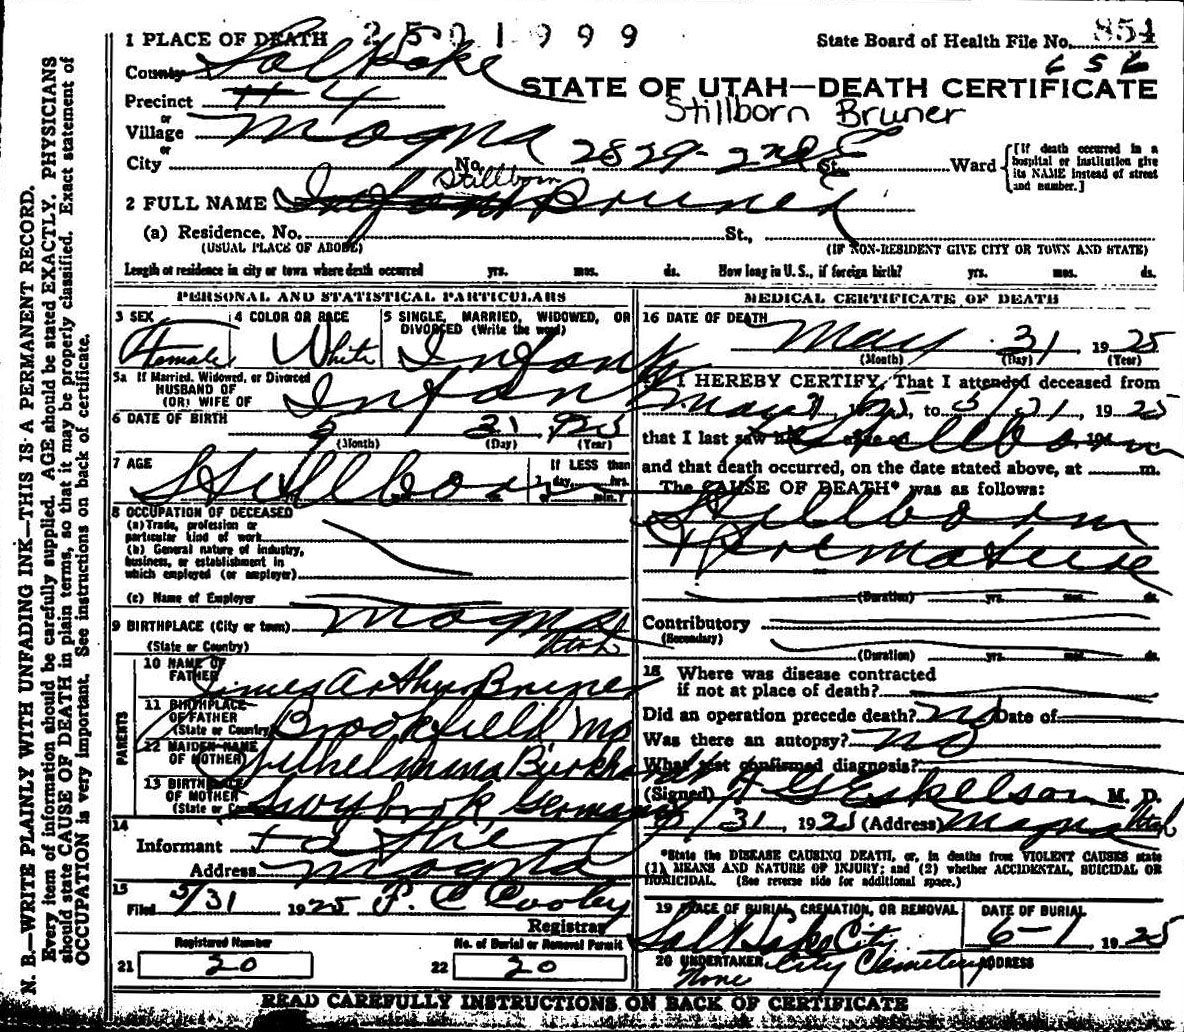 1 PLACE OF DEATH 2501999
State Board of Health File No. 854
656
County Salt Lake
STATE OF UTAH—DEATH CERTIFICATE
Precinct # 4
Stillborn Bruner
or
Village Magna
or
City No. 2829-2nd E St. Ward
[If death occurred in a hospital or institution give its NAME instead of street and number.]
Stillborn
2 FULL NAME Infant Bruner
(a) Residence. No. St.,
(USUAL PLACE OF ABODE) (IF NON-RESIDENT GIVE CITY OR TOWN AND STATE)
Length of residence in city or town where death occurred yrs. mos. ds. How long in U. S., if foreign birth? yrs. mos. ds.
PERSONAL AND STATISTICAL PARTICULARS
3 SEX
Female
4 COLOR OR RACE
White
5 SINGLE, MARRIED, WIDOWED, OR
DIVORCED (Write the word)
Infant
5a If Married, Widowed, or Divorced
HUSBAND OF
(OR) WIFE OF Infant
6 DATE OF BIRTH 5 31 925
(Month) (Day) (Year)
7 AGE Stillborn
If LESS than
1 day, hrs.
min.?
8 OCCUPATION OF DECEASED
(a) Trade, profession or
particular kind of work
(b) General nature of industry,
business, or establishment in
which employed (or employer)
(c) Name of Employer
9 BIRTHPLACE (City or town) Magna
(State or Country) Utah
PARENTS
10 NAME OF
FATHER James Arthur Bruner
11 BIRTHPLACE
OF FATHER
(State or Country) Brookfield Mo
12 MAIDEN NAME
OF MOTHER) Wilhelmina Burkhardt
13 BIRTHPLACE
OF MOTHER
(State or Country) Germany
14
Informant Father
Address Magna
15
Filed 5/31 1925 F. C. Cooley
Registrar
Registered Number
21 20
No. of Burial or Removal Permit
22 20
MEDICAL CERTIFICATE OF DEATH
16 DATE OF DEATH
May 31, 1925
(Month) (Day) (Year)
17 I HEREBY CERTIFY, That I attended deceased from
May 31, 1925, to 5/31, 1925
that I last saw h alive on Stillborn 19
and that death occurred, on the date stated above, at m.
The CAUSE OF DEATH* was as follows:
Stillborn
Premature
(Duration) yrs. mos. ds.
Contributory
(Secondary)
(Duration) yrs. mos. ds.
18 Where was disease contracted
if not at place of death?
Did an operation precede death? No Date of
Was there an autopsy? No
What test confirmed diagnosis?
(Signed) G Eskelson M. D.
5/31, 1925 (Address) Magna Utah
*State the DISEASE CAUSING DEATH, or, in deaths from VIOLENT CAUSES state
(1) MEANS AND NATURE OF INJURY; and (2) whether ACCIDENTAL, SUICIDAL OR
HOMICIDAL. (See reverse side for additional space.)
19 PLACE OF BURIAL, CREMATION, OR REMOVAL
Salt Lake City
City Cemetery
DATE OF BURIAL
6-1 1925
20 UNDERTAKER
None
ADDRESS
READ CAREFULLY INSTRUCTIONS ON BACK OF CERTIFICATE
N. B.—WRITE PLAINLY WITH UNFADING INK—THIS IS A PERMANENT RECORD.
Every item of information should be carefully supplied. AGE should be stated EXACTLY. PHYSICIANS
should state CAUSE OF DEATH in plain terms, so that it may be properly classified. Exact statement of
OCCUPATION is very important. See instructions on back of certificate.